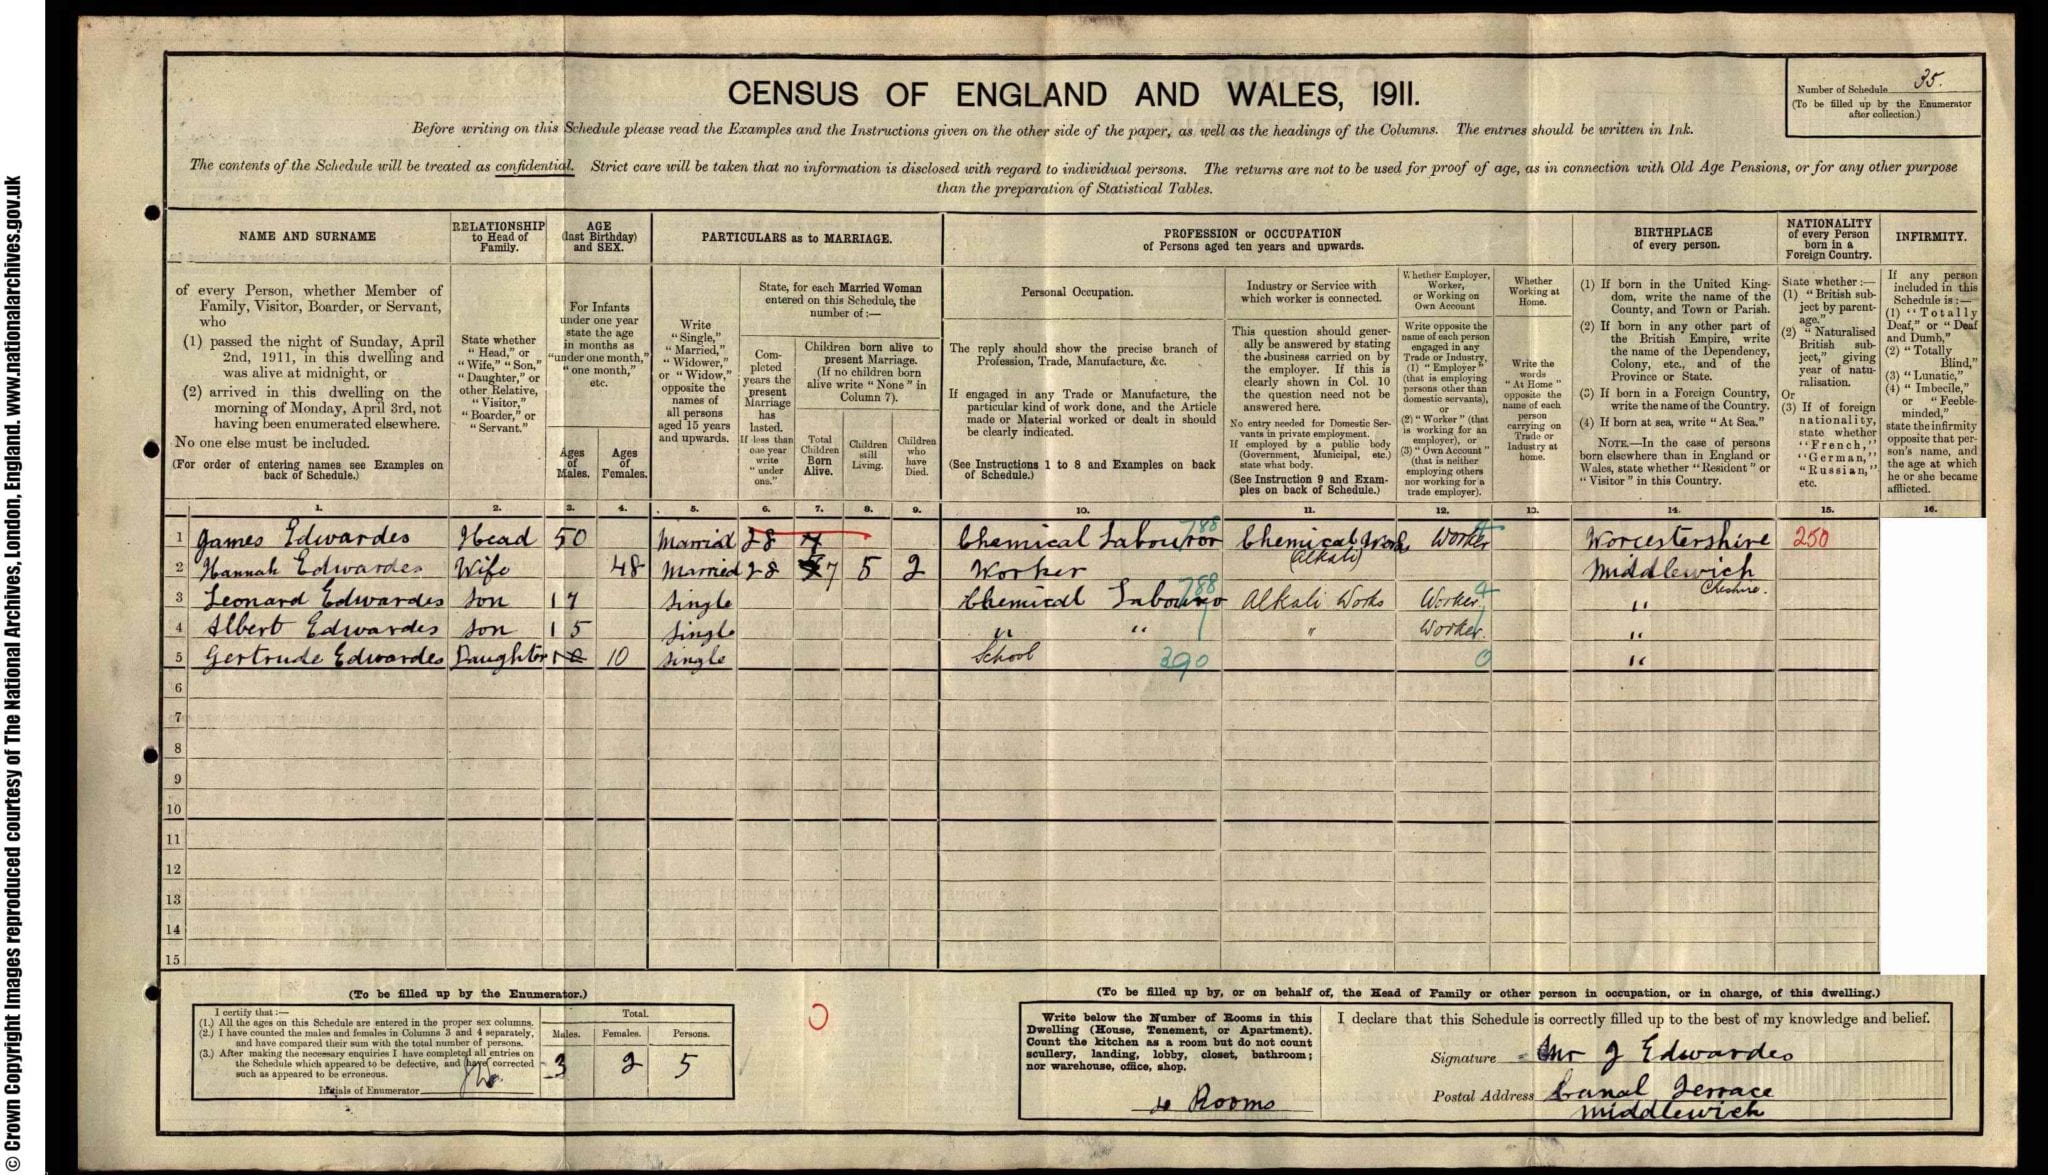 © Crown Copyright Images reproduced courtesy of The National Archives, London, England. www.nationalarchives.gov.uk
CENSUS OF ENGLAND AND WALES, 1911.
Number of Schedule 35.
(To be filled up by the Enumerator
after collection.)
Before writing on this Schedule please read the Examples and the Instructions given on the other side of the paper, as well as the headings of the Columns. The entries should be written in Ink.
The contents of the Schedule will be treated as confidential. Strict care will be taken that no information is disclosed with regard to individual persons. The returns are not to be used for proof of age, as in connection with Old Age Pensions, or for any other purpose
than the preparation of Statistical Tables.
NAME AND SURNAME
RELATIONSHIP
to Head of
Family.
AGE
(last Birthday)
and SEX.
PARTICULARS as to MARRIAGE.
PROFESSION or OCCUPATION
of Persons aged ten years and upwards.
BIRTHPLACE
of every person.
NATIONALITY
of every Person
born in a
Foreign Country.
INFIRMITY.
of every Person, whether Member of
Family, Visitor, Boarder, or Servant,
who
(1) passed the night of Sunday, April
2nd, 1911, in this dwelling and
was alive at midnight, or
(2) arrived in this dwelling on the
morning of Monday, April 3rd, not
having been enumerated elsewhere.
No one else must be included.
(For order of entering names see Examples on
back of Schedule.)
State whether
"Head," or
"Wife," "Son,"
"Daughter," or
other Relative,
"Visitor,"
"Boarder," or
"Servant."
For Infants
under one year
state the age
in months as
"under one month,"
"one month,"
etc.
Ages
of
Males.
Ages
of
Females.
Write
"Single,"
"Married,"
"Widower,"
or "Widow,"
opposite the
names of
all persons
aged 15 years
and upwards.
State, for each Married Woman
entered on this Schedule, the
number of:—
Com-
pleted
years the
present
Marriage
has
lasted.
If less than
one year
write
"under
one."
Children born alive to
present Marriage.
(If no children born
alive write "None" in
Column 7).
Total
Children
Born
Alive.
Children
still
Living.
Children
who
have
Died.
Personal Occupation.
The reply should show the precise branch of
Profession, Trade, Manufacture, &c.
If engaged in any Trade or Manufacture, the
particular kind of work done, and the Article
made or Material worked or dealt in should
be clearly indicated.
(See Instructions 1 to 8 and Examples on back
of Schedule.)
Industry or Service with
which worker is connected.
This question should gener-
ally be answered by stating
the business carried on by
the employer. If this is
clearly shown in Col. 10
the question need not be
answered here.
No entry needed for Domestic Ser-
vants in private employment.
If employed by a public body
(Government, Municipal, etc.)
state what body.
(See Instruction 9 and Exam-
ples on back of Schedule.)
Whether Employer,
Worker,
or Working on
Own Account
Write opposite the
name of each person
engaged in any
Trade or Industry,
(1) "Employer"
(that is employing
persons other than
domestic servants),
or
(2) "Worker" (that
is working for an
employer), or
(3) "Own Account"
(that is neither
employing others
nor working for a
trade employer).
Whether
Working at
Home.
Write the
words
"At Home"
opposite the
name of each
person
carrying on
Trade or
Industry at
home.
(1) If born in the United King-
dom, write the name of the
County, and Town or Parish.
(2) If born in any other part of
the British Empire, write
the name of the Dependency,
Colony, etc., and of the
Province or State.
(3) If born in a Foreign Country,
write the name of the Country.
(4) If born at sea, write "At Sea."
NOTE.—In the case of persons
born elsewhere than in England or
Wales, state whether "Resident" or
"Visitor" in this Country.
State whether:—
(1) "British sub-
ject by parent-
age."
(2) "Naturalised
British sub-
ject," giving
year of natu-
ralisation.
Or
(3) If of foreign
nationality,
state whether
"French,"
"German,"
"Russian,"
etc.
If any person
included in this
Schedule is:—
(1) "Totally
Deaf," or "Deaf
and Dumb,"
(2) "Totally
Blind,"
(3) "Lunatic,"
(4) "Imbecile,"
or "Feeble-
minded,"
state the infirmity
opposite that per-
son's name, and
the age at which
he or she became
afflicted.
1. 2. 3. 4. 5. 6. 7. 8. 9. 10. 11. 12. 13. 14. 15. 16.
1 James Edwardes Head 50 Married 28 7 Chemical Labouror 788 Chemical Work Worker Worcestershire 250
(Alkali)
2 Hannah Edwardes Wife 48 Married 28 7 5 2 Worker Middlewich
Cheshire.
3 Leonard Edwardes Son 17 Single Chemical Labouro 788 Alkali Works Worker "
4 Albert Edwardes Son 15 Single " " " Worker. "
5 Gertrude Edwardes Daughter 10 10 Single School 390 0 "
6
7
8
9
10
11
12
13
14
15
(To be filled up by the Enumerator.)
I certify that:—
(1.) All the ages on this Schedule are entered in the proper sex columns.
(2.) I have counted the males and females in Columns 3 and 4 separately,
and have compared their sum with the total number of persons.
(3.) After making the necessary enquiries I have completed all entries on
the Schedule which appeared to be defective, and have corrected
such as appeared to be erroneous.
Initials of Enumerator
Total.
Males. Females. Persons.
3 2 5
0
(To be filled up by, or on behalf of, the Head of Family or other person in occupation, or in charge, of this dwelling.)
Write below the Number of Rooms in this
Dwelling (House, Tenement, or Apartment).
Count the kitchen as a room but do not count
scullery, landing, lobby, closet, bathroom;
nor warehouse, office, shop.
4 Rooms
I declare that this Schedule is correctly filled up to the best of my knowledge and belief.
Signature Mr J Edwardes
Postal Address Canal Terrace
Middlewich